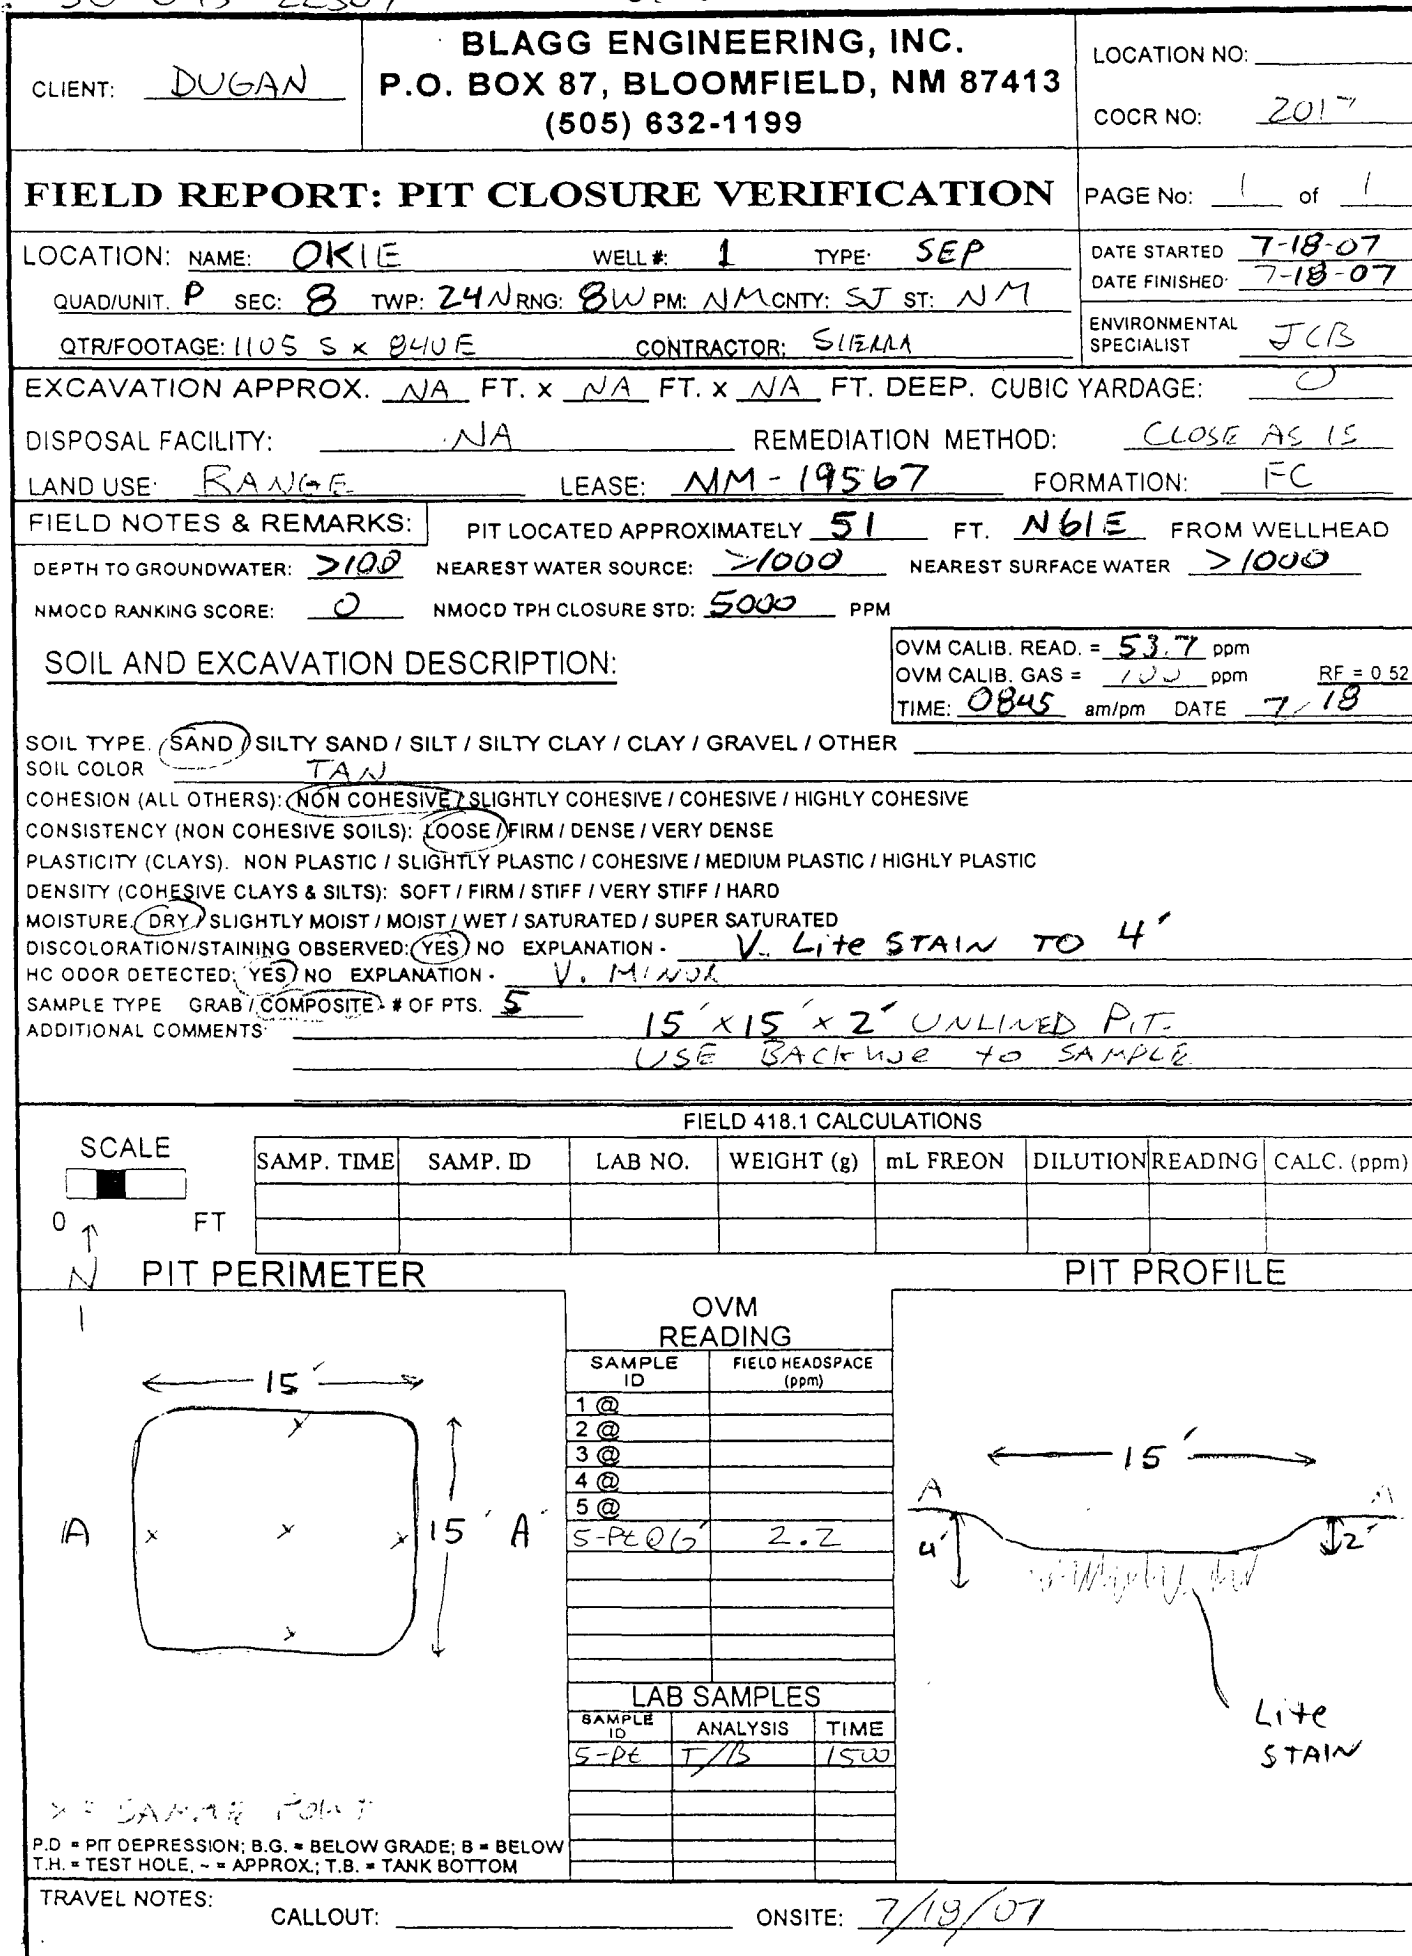 BLAGG ENGINEERING, INC.
P.O. BOX 87, BLOOMFIELD, NM 87413
(505) 632-1199
CLIENT: DUGAN
LOCATION NO:
COCR NO:
FIELD REPORT: PIT CLOSURE VERIFICATION
PAGE No: 1 of 1
LOCATION: NAME: OKIE WELL #: 1 TYPE: SEP
DATE STARTED 7-18-07
DATE FINISHED: 7-18-07
QUAD/UNIT. P SEC: 8 TWP: 24N RNG: 8W PM: NM CNTY: SJ ST: NM
QTR/FOOTAGE: 1105 S x 840E CONTRACTOR: SIERRA
ENVIRONMENTAL
SPECIALIST JCB
EXCAVATION APPROX. NA FT. x NA FT. x NA FT. DEEP. CUBIC YARDAGE: 0
DISPOSAL FACILITY: NA REMEDIATION METHOD: CLOSE AS IS
LAND USE: RANGE LEASE: NM-19567 FORMATION: FC
FIELD NOTES & REMARKS: PIT LOCATED APPROXIMATELY 51 FT. N61E FROM WELLHEAD
DEPTH TO GROUNDWATER: >100 NEAREST WATER SOURCE: >1000 NEAREST SURFACE WATER >1000
NMOCD RANKING SCORE: 0 NMOCD TPH CLOSURE STD: 5000 PPM
SOIL AND EXCAVATION DESCRIPTION:
OVM CALIB. READ. = 53.7 ppm
OVM CALIB. GAS = 100 ppm RF = 0 52
TIME: 0845 am/pm DATE 7/18
SOIL TYPE. SAND / SILTY SAND / SILT / SILTY CLAY / CLAY / GRAVEL / OTHER
SOIL COLOR TAN
COHESION (ALL OTHERS): NON COHESIVE / SLIGHTLY COHESIVE / COHESIVE / HIGHLY COHESIVE
CONSISTENCY (NON COHESIVE SOILS): LOOSE / FIRM / DENSE / VERY DENSE
PLASTICITY (CLAYS). NON PLASTIC / SLIGHTLY PLASTIC / COHESIVE / MEDIUM PLASTIC / HIGHLY PLASTIC
DENSITY (COHESIVE CLAYS & SILTS): SOFT / FIRM / STIFF / VERY STIFF / HARD
MOISTURE. DRY / SLIGHTLY MOIST / MOIST / WET / SATURATED / SUPER SATURATED
DISCOLORATION/STAINING OBSERVED: YES NO EXPLANATION - V. Lite STAIN TO 4'
HC ODOR DETECTED: YES NO EXPLANATION - V. MINOR
SAMPLE TYPE GRAB / COMPOSITE - # OF PTS. 5
ADDITIONAL COMMENTS 15' x 15' x 2' UNLINED PIT.
USE BACKHOE to SAMPLE
FIELD 418.1 CALCULATIONS
SCALE
0 FT
N
SAMP. TIME SAMP. ID LAB NO. WEIGHT (g) mL FREON DILUTION READING CALC. (ppm)
PIT PERIMETER
15'
A 15' A'
OVM
READING
SAMPLE ID FIELD HEADSPACE (ppm)
1 @
2 @
3 @
4 @
5 @
5-Pt @ 2.2
LAB SAMPLES
SAMPLE ID ANALYSIS TIME
5-Pt T/B 1500
PIT PROFILE
15'
A A
4' 2'
Lite
STAIN
X = SAMPLE POINT
P.D = PIT DEPRESSION; B.G. = BELOW GRADE; B = BELOW
T.H. = TEST HOLE, ~ = APPROX.; T.B. = TANK BOTTOM
TRAVEL NOTES:
CALLOUT: ONSITE: 7/18/07